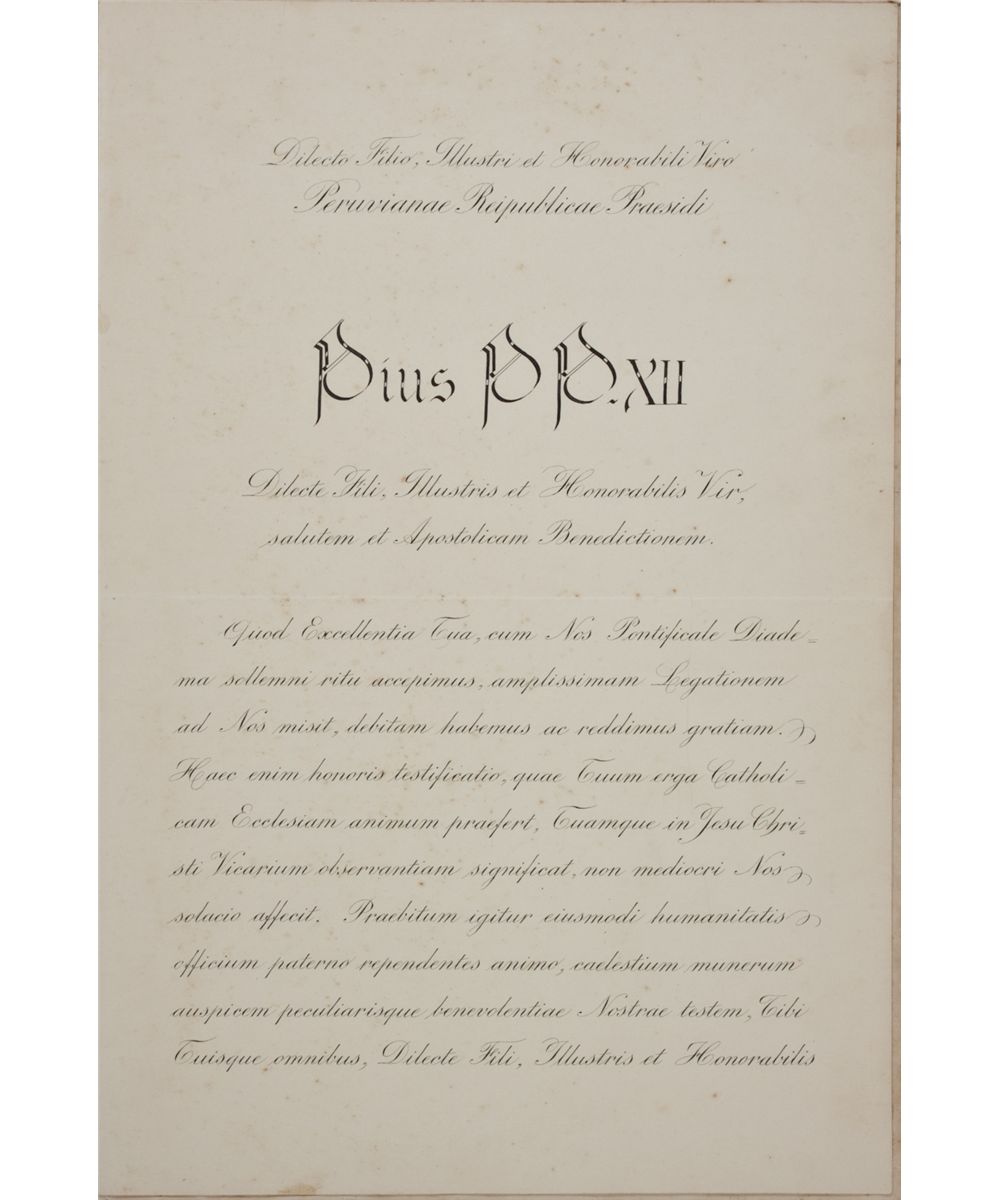 Dilecto Filio, Illustri et Honorabili Viro
Peruvianae Reipublicae Praesidi
Pius PP. XII
Dilecte Fili, Illustris et Honorabilis Vir,
salutem et Apostolicam Benedictionem.
Quod Excellentia Tua, cum Nos Pontificale Diade=
ma sollemni ritu accepimus, amplissimam Legationem
ad Nos misit, debitam habemus ac reddimus gratiam.
Haec enim honoris testificatio, quae Tuum erga Catholi=
cam Ecclesiam animum praefert, Tuamque in Jesu Chri=
sti Vicarium observantiam significat, non mediocri Nos
solacio affecit. Praebitum igitur eiusmodi humanitatis
officium paterno rependentes animo, caelestium munerum
auspicem peculiarisque benevolentiae Nostrae testem, Tibi
Tuisque omnibus, Dilecte Fili, Illustris et Honorabilis